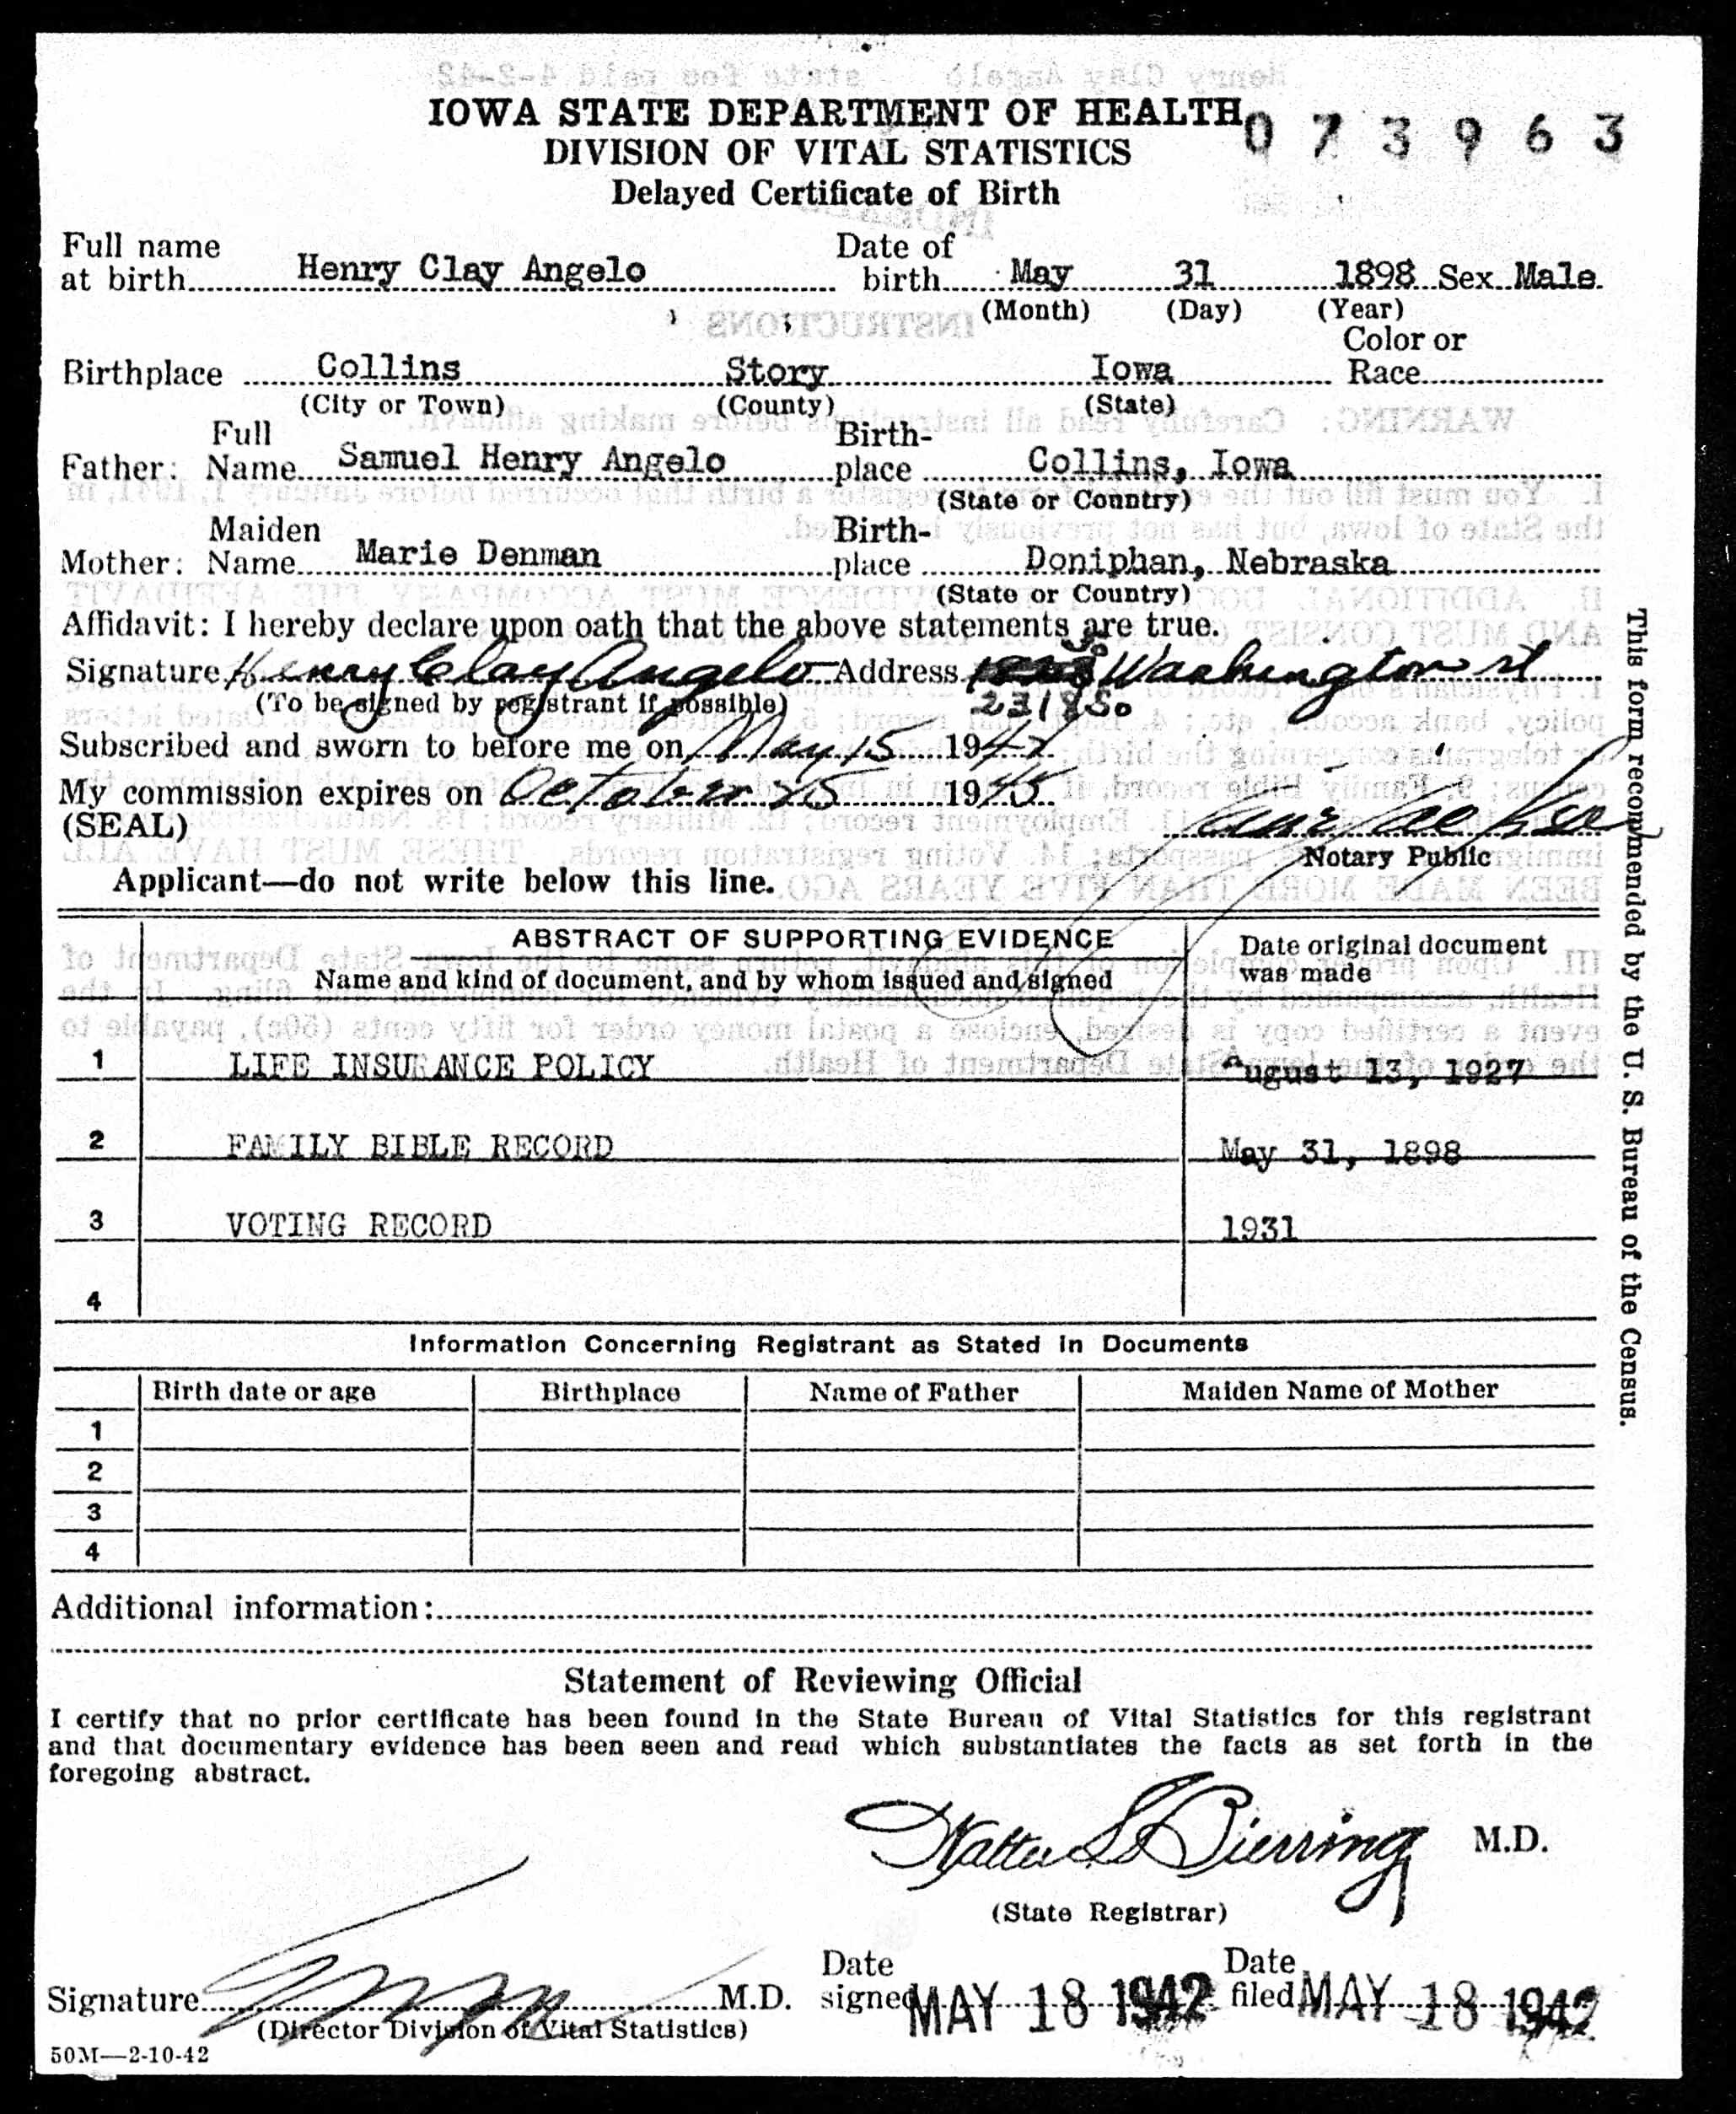 IOWA STATE DEPARTMENT OF HEALTH
073963
DIVISION OF VITAL STATISTICS
Delayed Certificate of Birth
Full name at birth Henry Clay Angelo Date of birth May 31 1898 Sex Male
(Month) (Day) (Year)
Color or
Birthplace Collins Story Iowa Race
(City or Town) (County) (State)
Father: Full Name Samuel Henry Angelo Birth-place Collins, Iowa
(State or Country)
Mother: Maiden Name Marie Denman Birth-place Doniphan, Nebraska
(State or Country)
Affidavit: I hereby declare upon oath that the above statements are true.
Signature Henry Clay Angelo Address Washington st
(To be signed by registrant if possible) 2318 So
Subscribed and sworn to before me on May 15 1942
My commission expires on October 25 1945
(SEAL)
Notary Public
Applicant—do not write below this line.
ABSTRACT OF SUPPORTING EVIDENCE
Name and kind of document, and by whom issued and signed
Date original document was made
1 LIFE INSURANCE POLICY August 13, 1927
2 FAMILY BIBLE RECORD May 31, 1898
3 VOTING RECORD 1931
4
Information Concerning Registrant as Stated in Documents
Birth date or age Birthplace Name of Father Maiden Name of Mother
1
2
3
4
Additional information:
Statement of Reviewing Official
I certify that no prior certificate has been found in the State Bureau of Vital Statistics for this registrant
and that documentary evidence has been seen and read which substantiates the facts as set forth in the
foregoing abstract.
Walter L Bierring M.D.
(State Registrar)
Signature M.D. Date signed MAY 18 1942 Date filed MAY 18 1942
(Director Division of Vital Statistics)
50M—2-10-42
This form recommended by the U. S. Bureau of the Census.